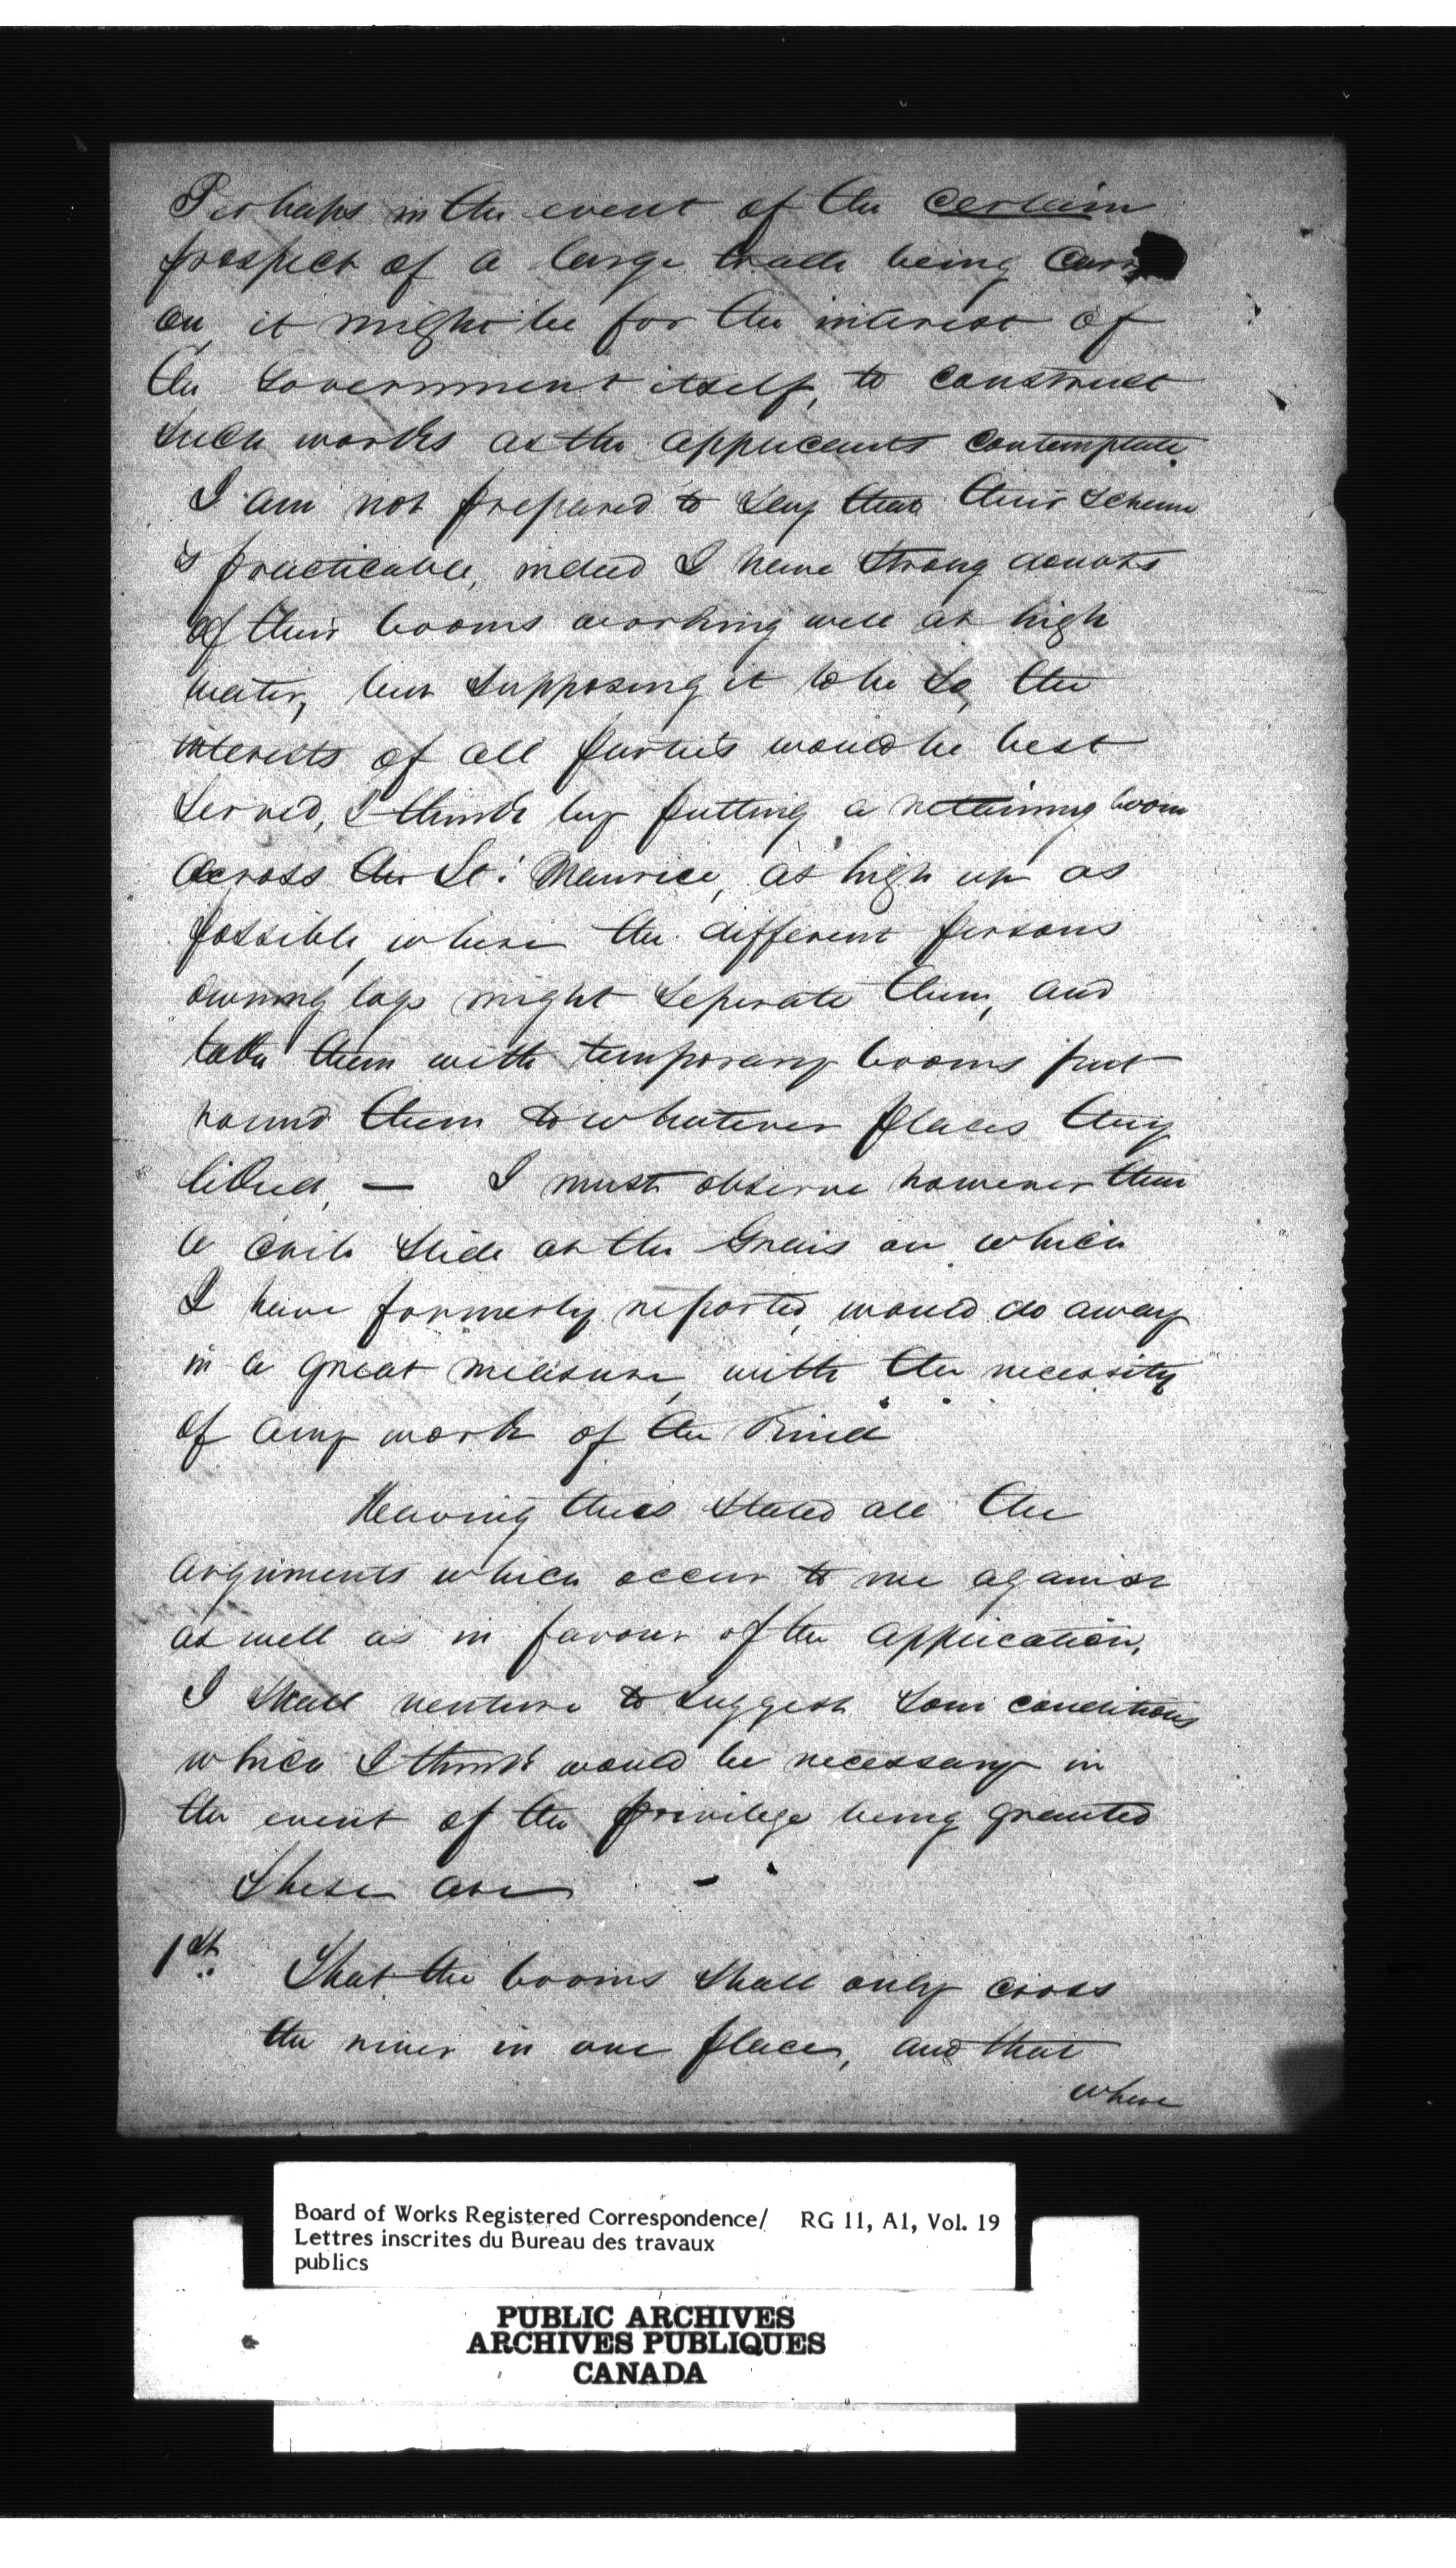 Perhaps in the event of the certain
prospect of a large trade being
on it might be for the interest of
the Government itself, to construct
such works as the applicants contemplate.
I am not prepared to say that their scheme
is practicable, indeed I have strong doubts
of their booms working well at high
water, but supposing it to be so, the
interests of all parties would be best
served, I think by putting a retaining boom
across the St: Maurice, as high up as
possible, where the different persons
owning logs might seperate them, and
take them with temporary booms put
round them to whatever places they
liked, — I must observe however that
a crib slide at the Grais on which
I have formerly reported, would do away
in a great measure, with the necessity
of any work of the kind
Having thus stated all the
arguments which occur to me against
as well as in favour of the application,
I shall venture to suggest some conditions
which I think would be necessary in
the event of the privilege being granted
These are -
1st. That the booms shall only cross
the river in one place, and that
where
Board of Works Registered Correspondence/ RG 11, A1, Vol. 19
Lettres inscrites du Bureau des travaux
publics
PUBLIC ARCHIVES
ARCHIVES PUBLIQUES
CANADA